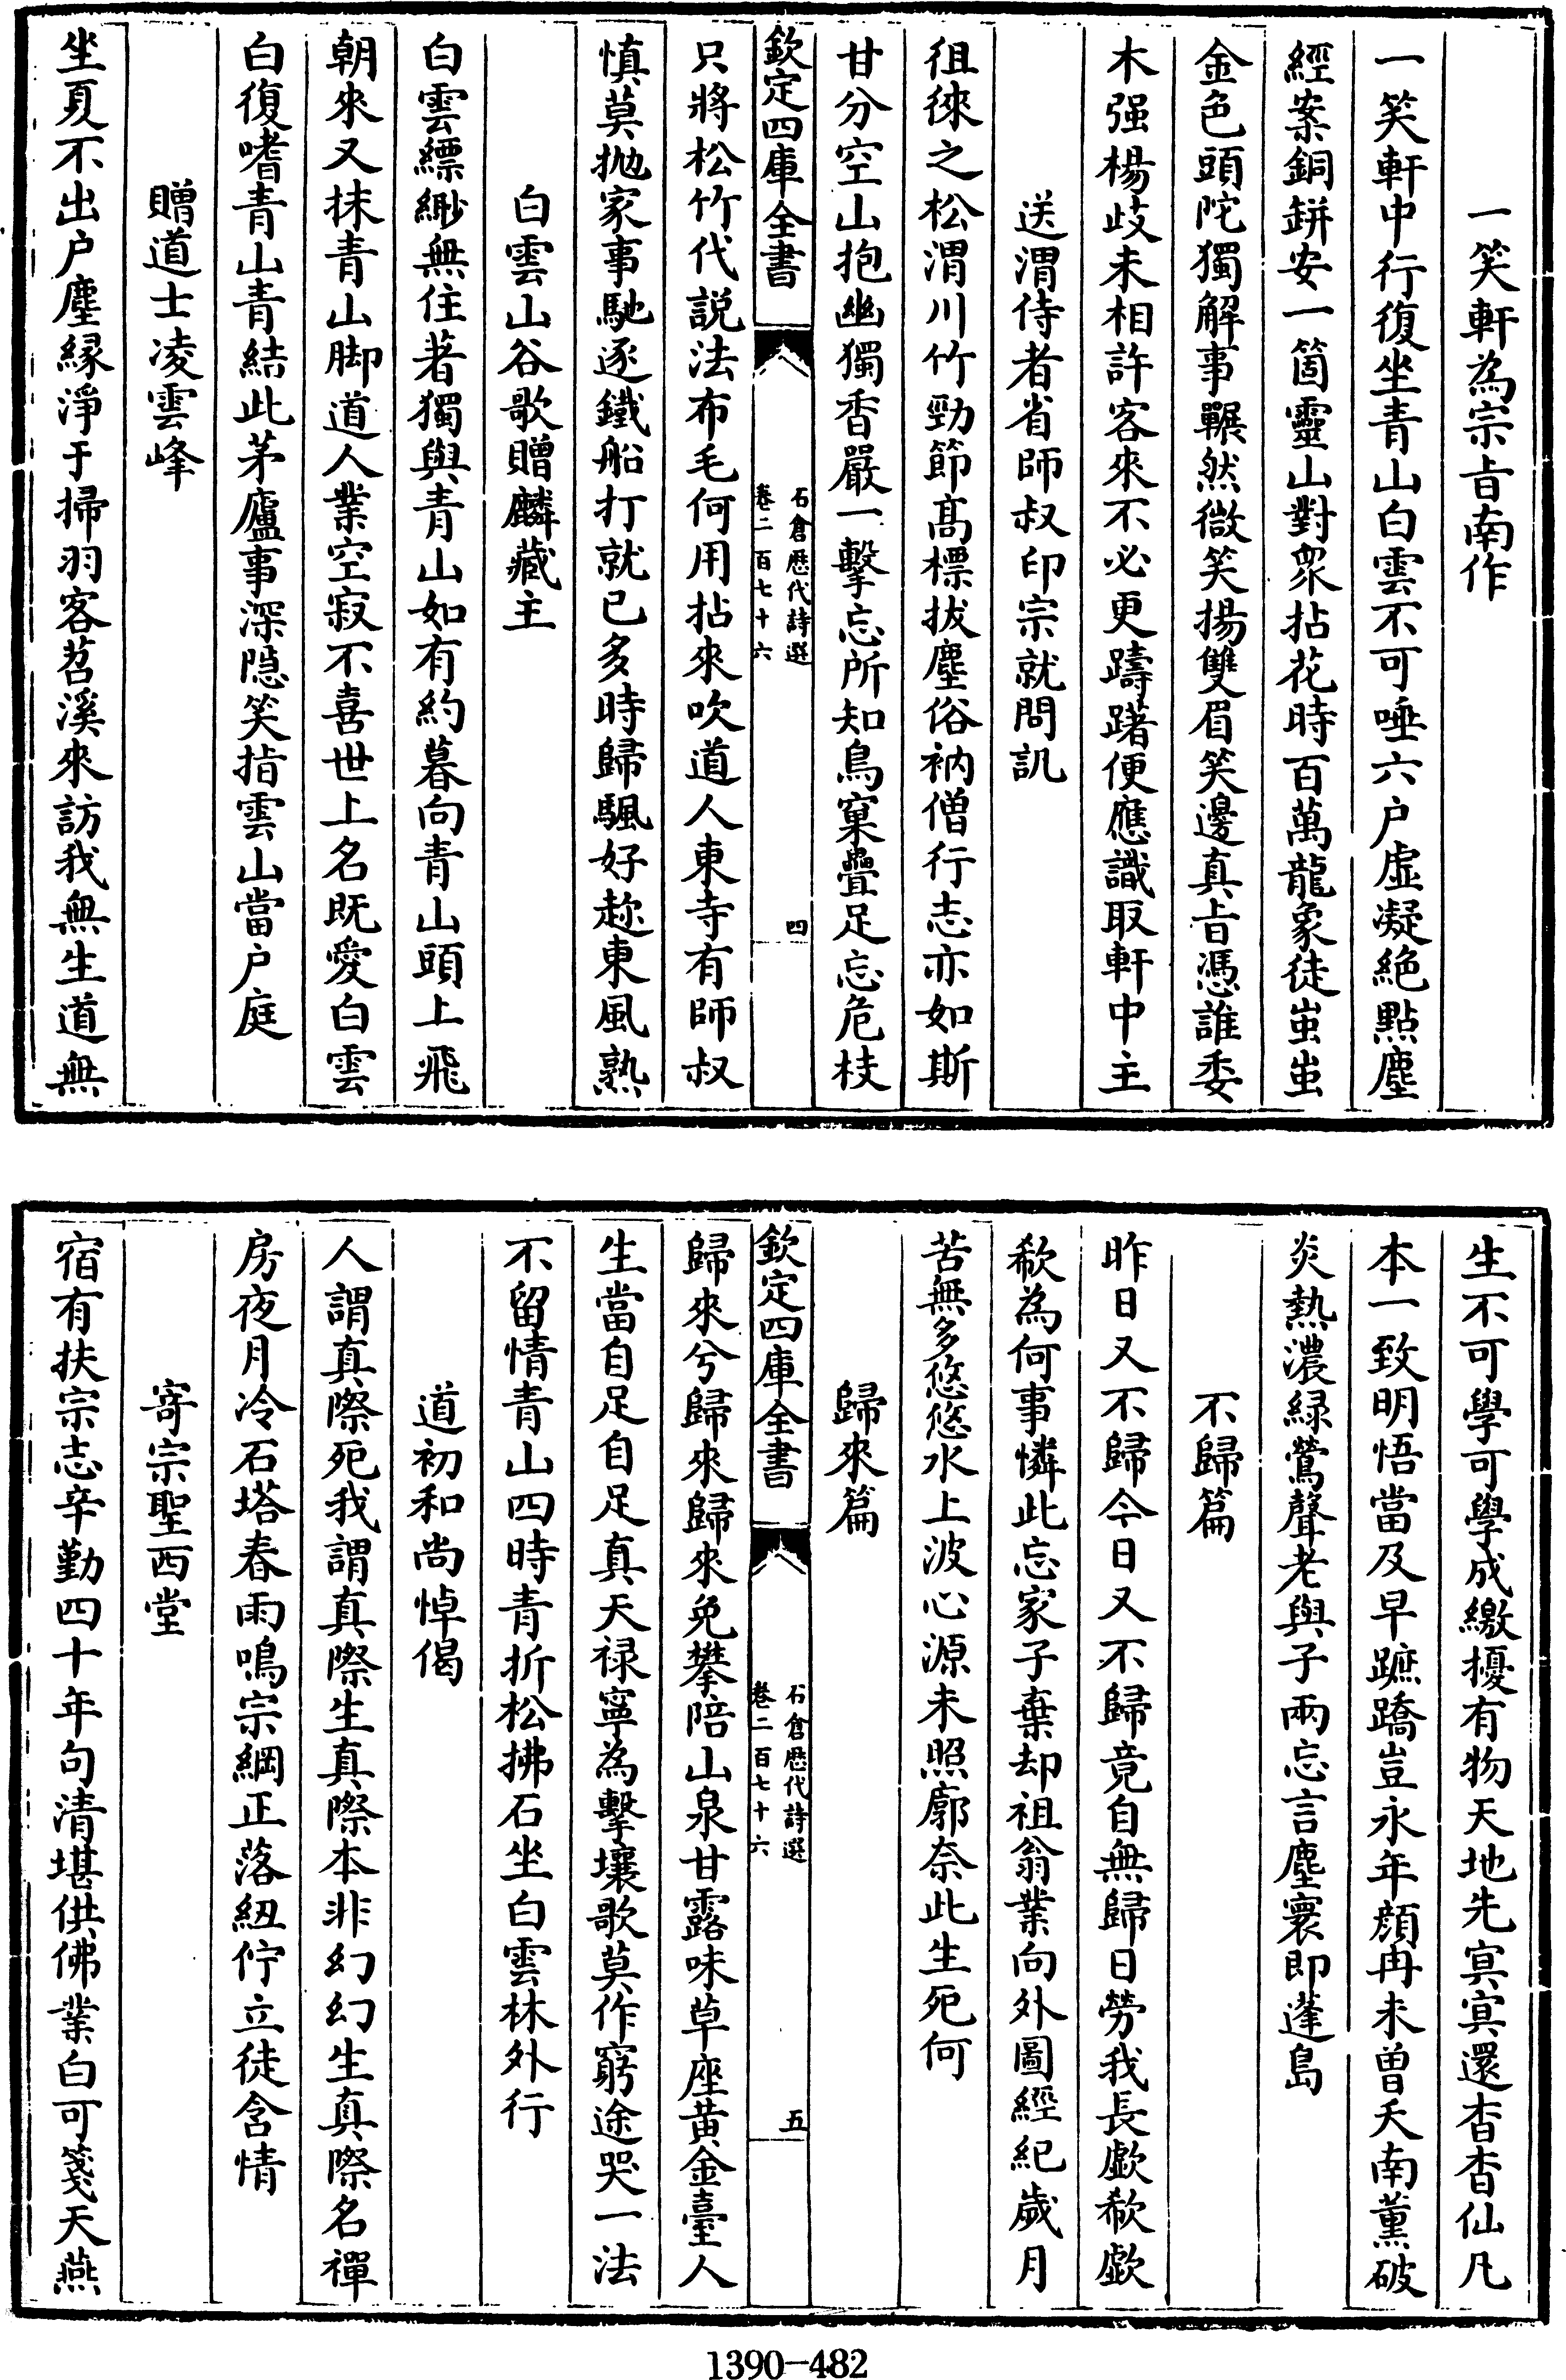 一笑軒為宗㫖南作
一笑軒中行復坐青山白雲不可唾六户虚凝絶㸃塵
經案銅缾安一箇靈山對衆拈花時百萬龍象徒蚩蚩
金色頭陀獨解事冁然微笑揚雙眉笑邊真㫖憑誰委
木强楊歧未相許客來不必更躊躇便應識取軒中主
送渭侍者省師叔印宗就問訊
徂徠之松渭川竹勁節髙標拔塵俗衲僧行志亦如斯
甘分空山抱幽獨香嚴一擊忘所知鳥窠疊足忘危枝
欽定四庫全書
石倉歴代詩選
卷二百七十六
四
只將松竹代説法布毛何用拈來吹道人東寺有師叔
慎莫抛家事馳逐鐵船打就已多時歸颿好趂東風熟
白雲山谷歌贈麟藏主
白雲縹緲無住著獨與青山如有約暮向青山頭上飛
朝來又抹青山脚道人業空寂不喜世上名既愛白雲
白復嗜青山青結此茅廬事深隱笑指雲山當户庭
贈道士凌雲峰
坐夏不出户塵縁淨于掃羽客苕溪來訪我無生道無
生不可學可學成繳擾有物天地先㝠㝠還杳杳仙凡
本一致明悟當及早蹠蹻豈永年顔冉未曽夭南薰破
炎熱濃緑鶯聲老與子兩忘言塵寰即蓬島
不歸篇
昨日又不歸今日又不歸竟自無歸日勞我長歔欷歔
欷為何事憐此忘家子棄却祖翁業向外圖經紀歲月
苦無多悠悠水上波心源未照廓奈此生死何
歸來篇
欽定四庫全書
石倉歴代詩選
卷二百七十六
五
歸來兮歸來歸來免攀陪山泉甘露味草座黄金臺人
生當自足自足真天禄寧為擊壤歌莫作窮途哭一法
不留情青山四時青折松拂石坐白雲林外行
道初和尚悼偈
人謂真際死我謂真際生真際本非幻幻生真際名禪
房夜月冷石塔春雨鳴宗綱正落紐佇立徒含情
寄宗聖西堂
宿有扶宗志辛勤四十年句清堪供佛業白可箋天燕
1390-482